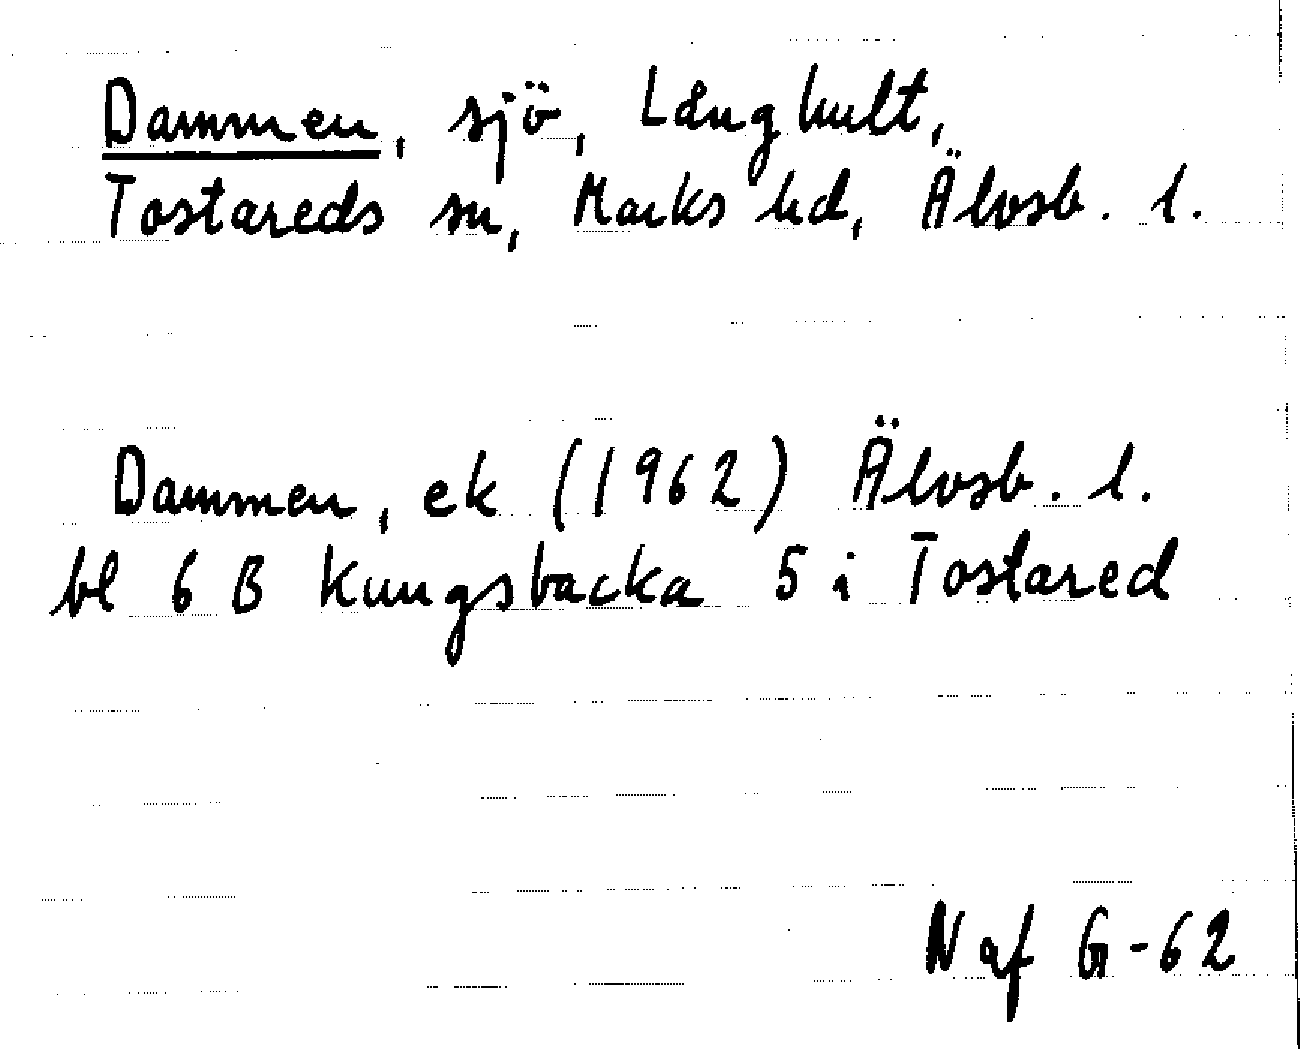 Dammen, sjö, Långhult,
Tostareds sn, Marks hd, Älvsb. l.
Dammen, ek (1962) Älvsb. l.
bl 6 B Kungsbacka 5 i Tostared
N af G-62